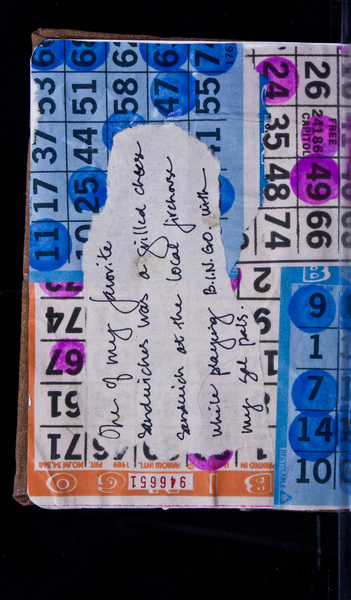 One of my favorite
sandwiches was a grilled cheese
sandwich at the local firehouse
while playing B.I.N.G.O. with
my gal pals.
53 68
37 44 51 62
11 17 58
25 47
41 55 72
176
24 26
35 49
48 66
74
FREE
24186
CAPITOL
B
9
1
7
14
10
2
74
67
51
71
O G I B
946651
ARROW INT'L
1989
PRINTED IN